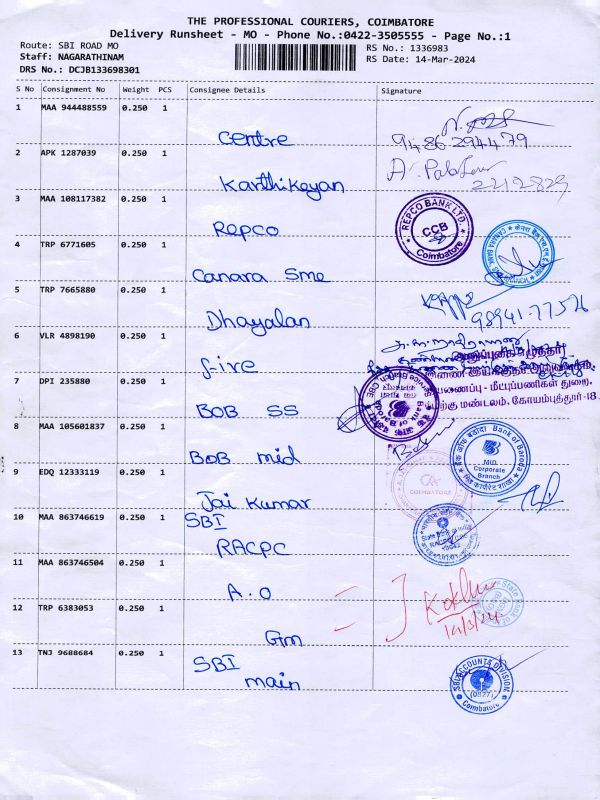 THE PROFESSIONAL COURIERS, COIMBATORE
Delivery Runsheet - MO - Phone No.:0422-3505555 - Page No.:1
Route: SBI ROAD MO
RS No.: 1336983
Staff: NAGARATHINAM
RS Date: 14-Mar-2024
DRS No.: DCJB133698301
S No Consignment No Weight PCS Consignee Details Signature
1 MAA 944488559 0.250 1
Centre
9486294479
2 APK 1287039 0.250 1
Karthikeyan
2212829
3 MAA 108117382 0.250 1
Repco
REPCO BANK LTD
CCB
Coimbatore
4 TRP 6771605 0.250 1
Canara Sme
5 TRP 7665880 0.250 1
Dhayalan
98941-77526
6 VLR 4898190 0.250 1
fire
7 DPI 235880 0.250 1
BOB SS
மேற்கு மண்டலம், கோயம்புத்தூர்-18
8 MAA 105601837 0.250 1
BOB mid
Bank of Baroda
Mid
Corporate
Branch
9 EDQ 12333119 0.250 1
Jai Kumar
COIMBATORE
10 MAA 863746619 0.250 1
SBI
RACPC
11 MAA 863746504 0.250 1
A.O
12 TRP 6383053 0.250 1
Gm
14/3/24
13 TNJ 9688684 0.250 1
SBI
main
SBI ACCOUNTS DIVISION
(0827)
Coimbatore